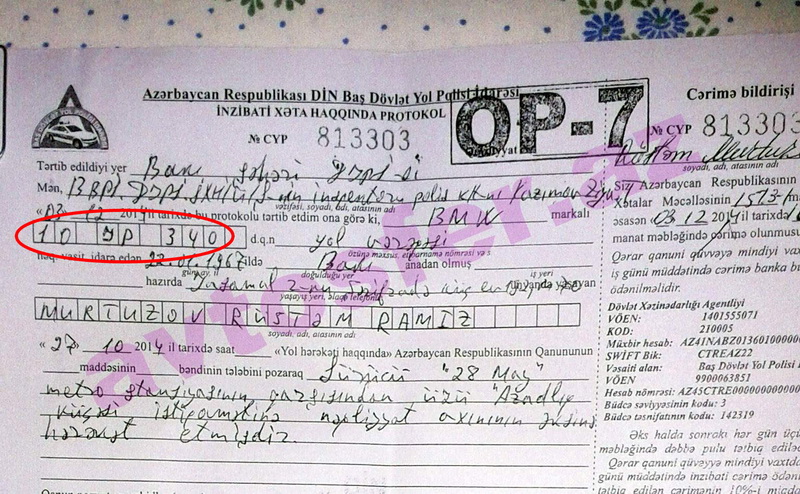 Azərbaycan Respublikası DİN Baş Dövlət Yol Polisi İdarəsi
İNZİBATİ XƏTA HAQQINDA PROTOKOL
№ CYP 813303
OP-7
Tərtib edildiyi yer Bakı şəhəri
Mən, polis
vəzifəsi, soyadı, adı, atasının adı
2014 il tarixdə bu protokolu tərtib etdim ona görə ki, BMW markalı
10 JP 340 d.q.n yol vərəqəsi
özünə məxsus, etibarnamə nömrəsi və s.
haq. vəsit. idarə edən 22.01.1967 ildə Bakı anadan olmuş
gün, ay, il doğulduğu yer iş yeri
hazırda Yasamal ünvanda yaşayan
yaşayış yeri, əlaqə telefonu
MURTUZOV RÜSTƏM RAMİZ
soyadı, adı, atasının adı
« 27 » 10 2014 il tarixdə saat «Yol hərəkəti haqqında» Azərbaycan Respublikasının Qanununun
maddəsinin bəndinin tələbini pozaraq Sürücü "28 May"
metro stansiyasının qarşısından üzü "Azadlıq
küçəsi istiqamətinə nəqliyyat axınının əksinə
hərəkət etmişdir.
Cərimə bildirişi
№ CYP 813303
Rüstəm Murtuz
soyadı, adı, atasının adı
Siz Azərbaycan Respublikasının
Xətalar Məcəlləsinin 151-3
əsasən 03.12 2014 il tarixdə
manat məbləğində cərimə olunmusunuz
Qərar qanuni qüvvəyə mindiyi vaxtdan
iş günü müddətində cərimə banka
ödənilməlidir.
Dövlət Xəzinədarlığı Agentliyi
VÖEN: 1401555071
KOD: 210005
Müxbir hesab: AZ41NABZ01360100
SWIFT Bik: CTREAZ22
Vəsaiti alan: Baş Dövlət Yol Polisi
VÖEN 9900063851
Hesab nömrəsi: AZ45CTRE00000000000
Büdcə səviyyəsinin kodu: 3
Büdcə təsnifatının kodu: 142319
Əks halda sonrakı hər gün üçün
məbləğində dəbbə pulu tətbiq ediləcək
Qərar qanuni qüvvəyə mindiyi vaxtdan
günü müddətində inzibati cərimə
tətbiq edilən cərimənin 10%-i
avtosfer.az